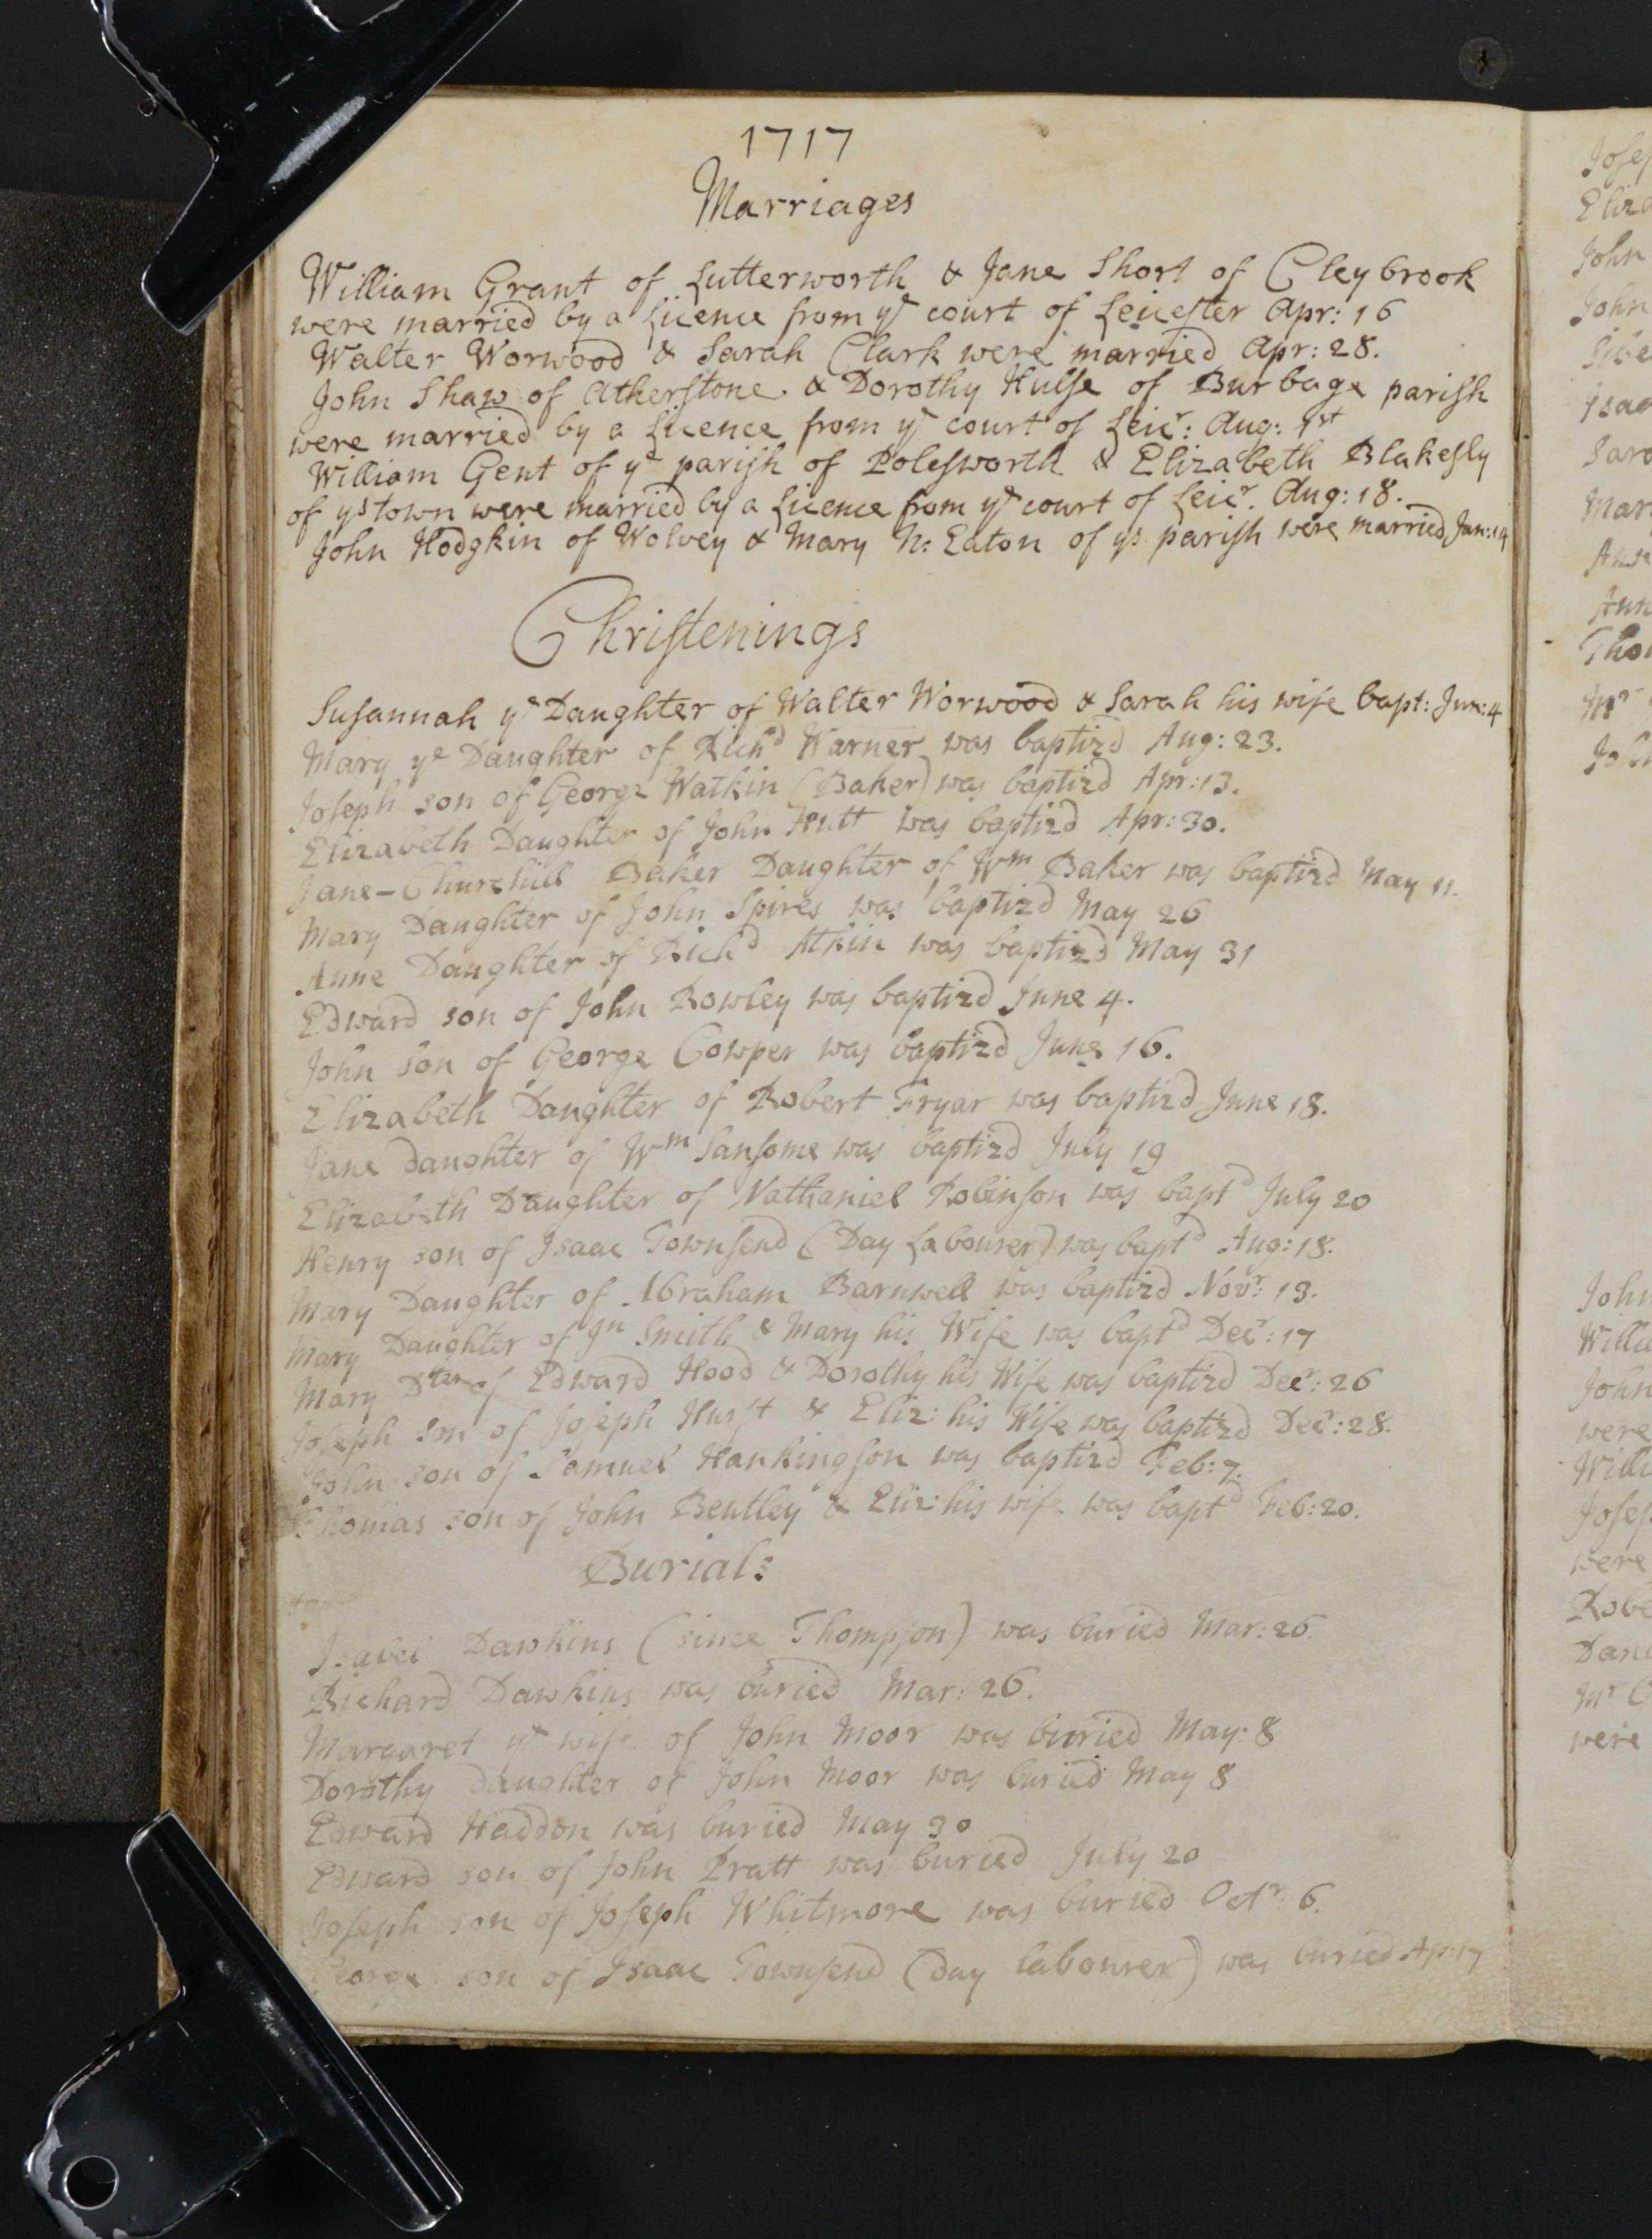 1717
Marriages
William Grant of Lutterworth & Jane Short of Cleybrook
were married by a Licence from ye court of Leicester Apr: 16
Walter Worwood & Sarah Clark were married Apr: 28.
John Shaw of Atherstone & Dorothy Hulse of Burbage parish
were married by a Licence from ye court of Leicr: Aug: 1st
William Gent of ye parish of Polesworth & Elizabeth Blakesly
of ys town were married by a Licence from ye court of Leicr. Aug: 18.
John Hodgkin of Wolvey & Mary N: Eaton of ys parish were married Jan: 14
Christenings
Susannah ye Daughter of Walter Worwood & Sarah his wife bapt: Jun: 4
Mary ye Daughter of Richd Warner was baptizd Aug: 23.
Joseph son of George Watkin (Baker) was baptizd Apr: 13.
Elizabeth Daughter of John Hutt was baptizd Apr: 30.
Jane-Churchill Baker Daughter of Wm Baker was baptizd May 11.
Mary Daughter of John Spires was baptizd May 26
Anne Daughter of Richd Atkin was baptizd May 31
Edward son of John Rowley was baptizd June 4.
John Son of George Cowper was baptizd June 16.
Elizabeth Daughter of Robert Fryar was baptizd June 18.
Jane daughter of Wm Sansome was baptizd July 19
Elizabeth Daughter of Nathaniel Robinson was baptd July 20
Henry son of Isaac Townsend (Day Labourer) was baptd Aug: 18.
Mary Daughter of Abraham Barnwell was baptizd Novr: 13.
Mary Daughter of Jn Smith & Mary his Wife was baptd Decr: 17
Mary Dter of Edward Hood & Dorothy his Wife was baptizd Decr: 26
Joseph Son of Joseph Hurst & Eliz: his Wife was baptizd Decr: 28.
John son of Samuel Hankingson was baptizd Feb: 7.
Thomas son of John Bentley & Eliz: his wife was baptd Feb: 20.
Burials
Isabel Dawkins (since Thompson) was buried Mar: 26.
Richard Dawkins was buried Mar: 26.
Margaret ye wife of John Moor was buried May: 8
Dorothy daughter of John Moor was buried May 8
Edward Haddon was buried May 30
Edward son of John Pratt was buried July 20
Joseph son of Joseph Whitmore was buried Octr: 6.
George son of Isaac Townsend (Day labourer) was buried Ap: 17